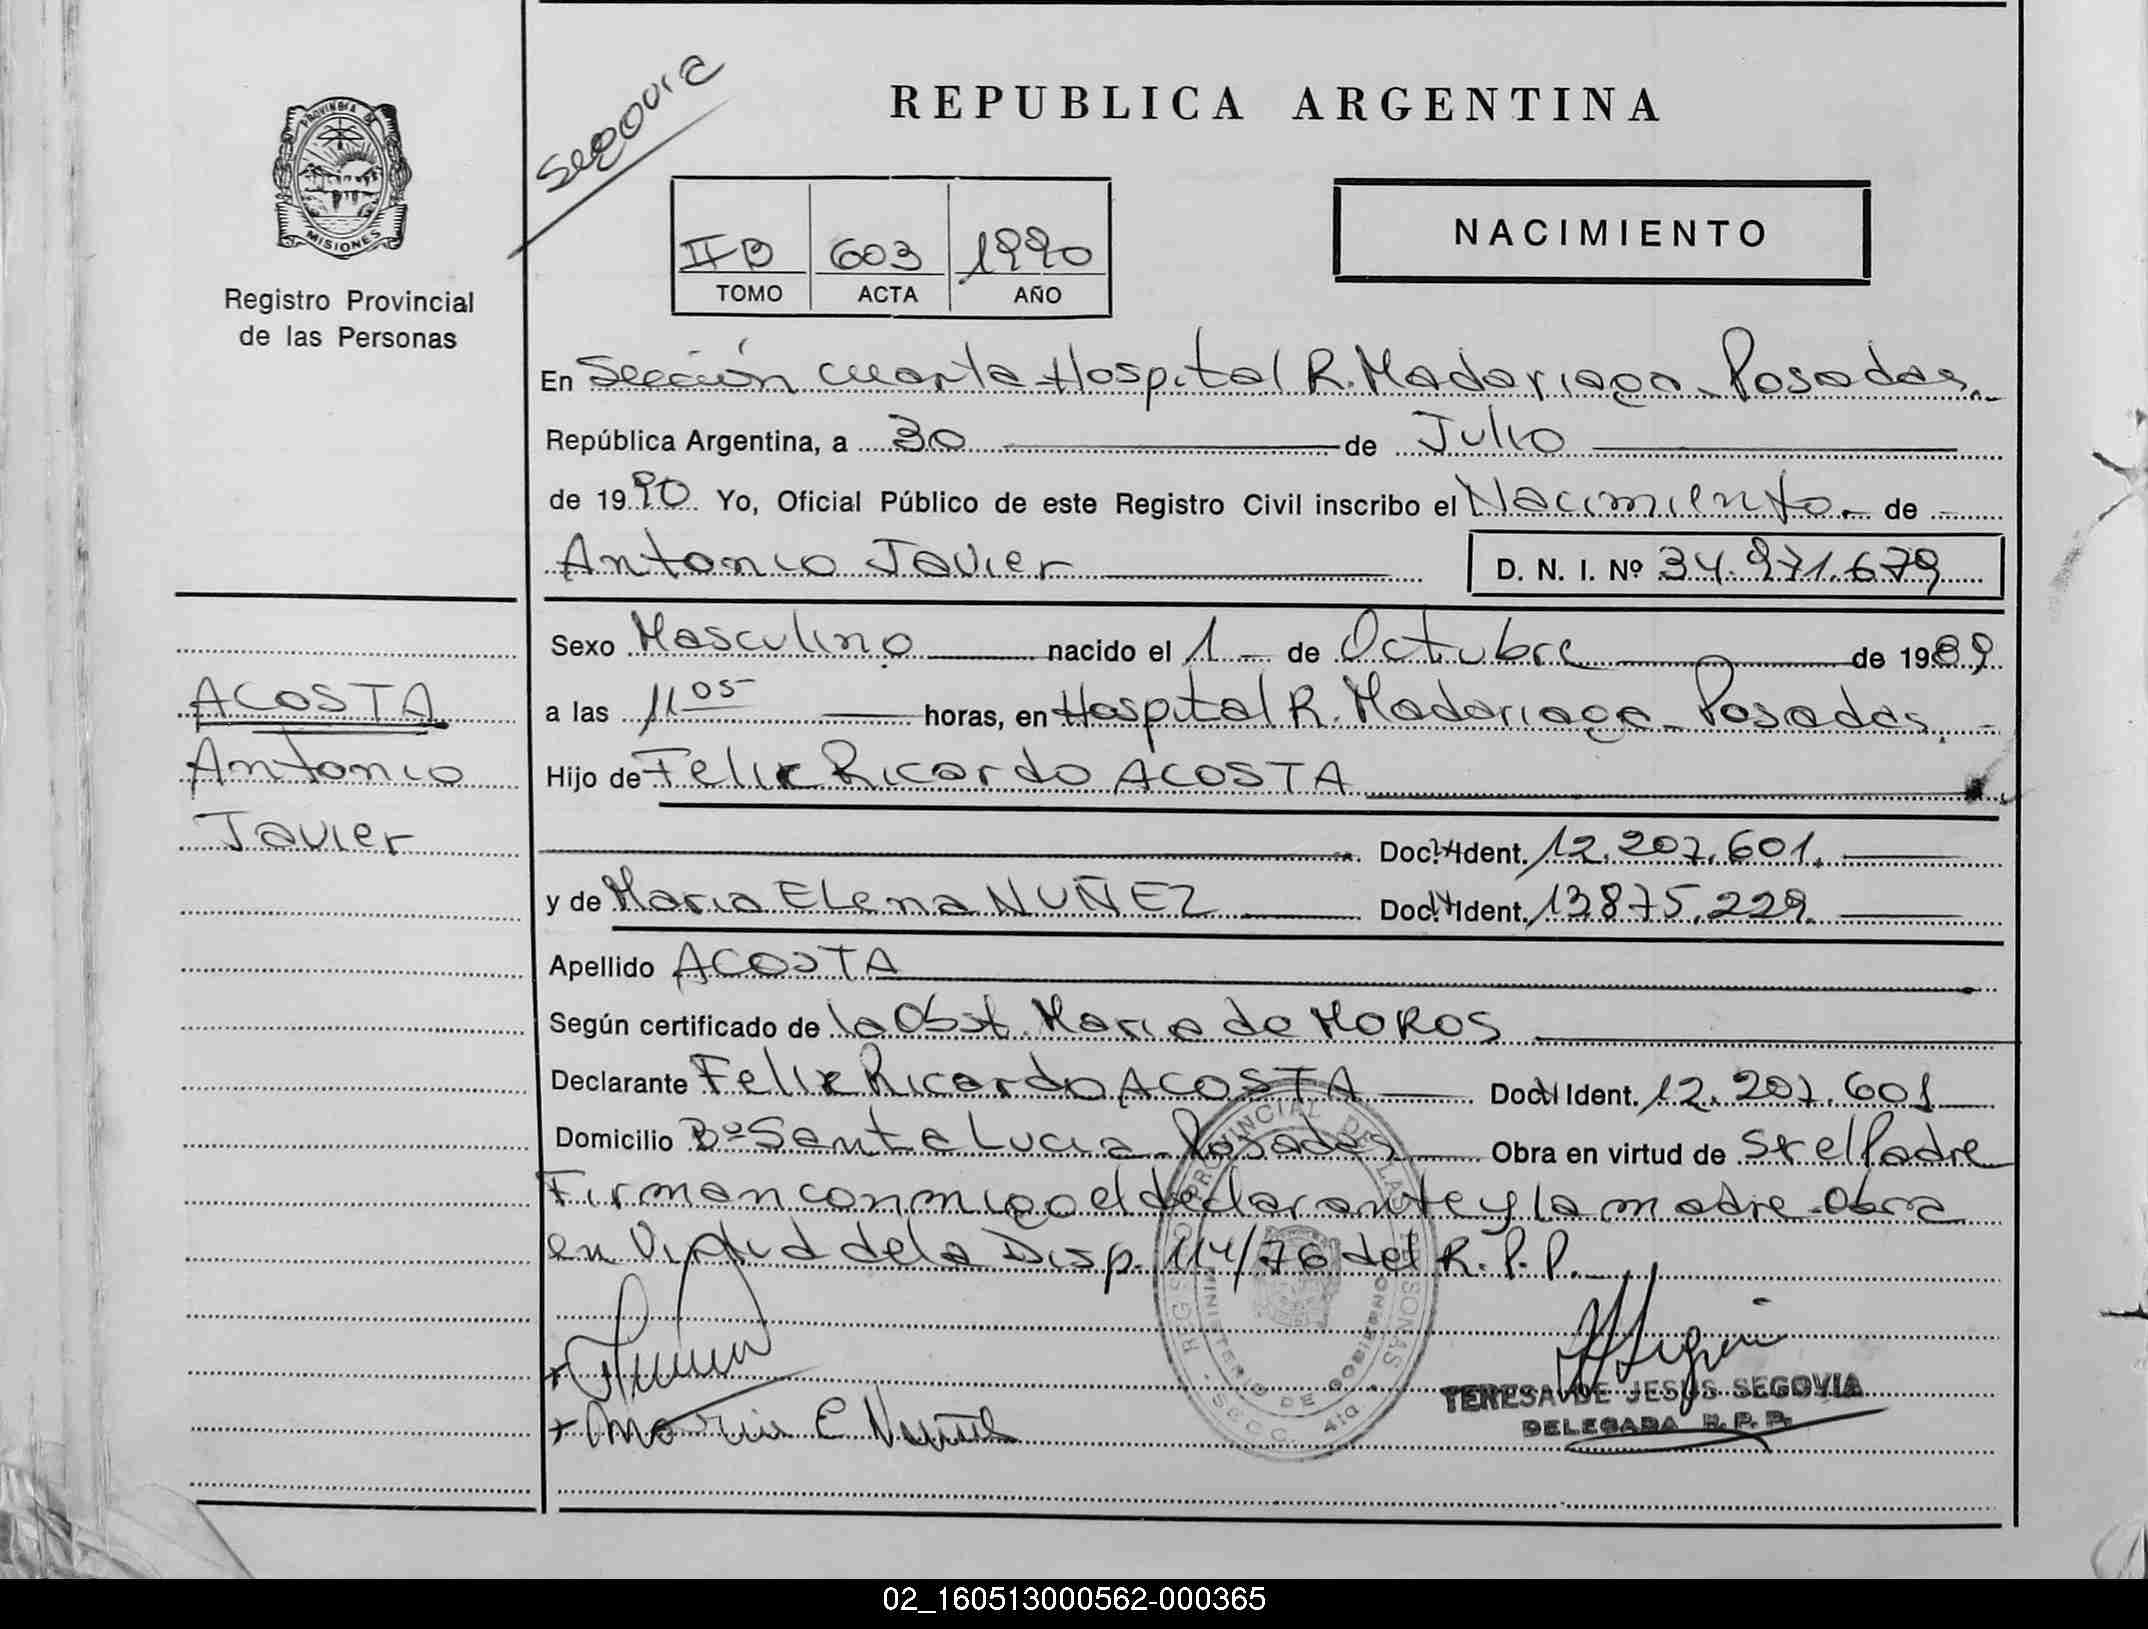 Segovia
REPUBLICA ARGENTINA
PROVINCIA DE
MISIONES
Registro Provincial
de las Personas
IIB 603 1990
TOMO ACTA AÑO
NACIMIENTO
En Sección cuarta Hospital R. Madariaga - Posadas.-
República Argentina, a 30 de Julio
de 1990 Yo, Oficial Público de este Registro Civil inscribo el Nacimiento.- de
Antonio Javier D. N. I. Nº 34.971.679
Sexo Masculino nacido el 1 - de Octubre de 1989
a las 11 05 horas, en Hospital R. Madariaga - Posadas. -
Hijo de Felix Ricardo ACOSTA
Doc. Ident. 12.207.601.
y de Maria Elena NUÑEZ Doc. Ident. 13875.229.
Apellido ACOSTA
Según certificado de la Obst. Maria de MOROS
Declarante Felix Ricardo ACOSTA Doc. Ident. 12.207.601
Domicilio Bº Santa Lucia - Posadas Obra en virtud de Sr el Padre
Firman conmigo el declarante y la madre. Obra
en Virtud de la Disp. 114/76 del R.P.P.
ACOSTA
Antonio
Javier
REGISTRO PROVINCIAL DE LAS PERSONAS
MINISTERIO DE GOBIERNO
SECC. 4ta
+ Maria E Nuñez
TERESA DE JESUS SEGOVIA
DELEGADA R. P. P.
02_160513000562-000365